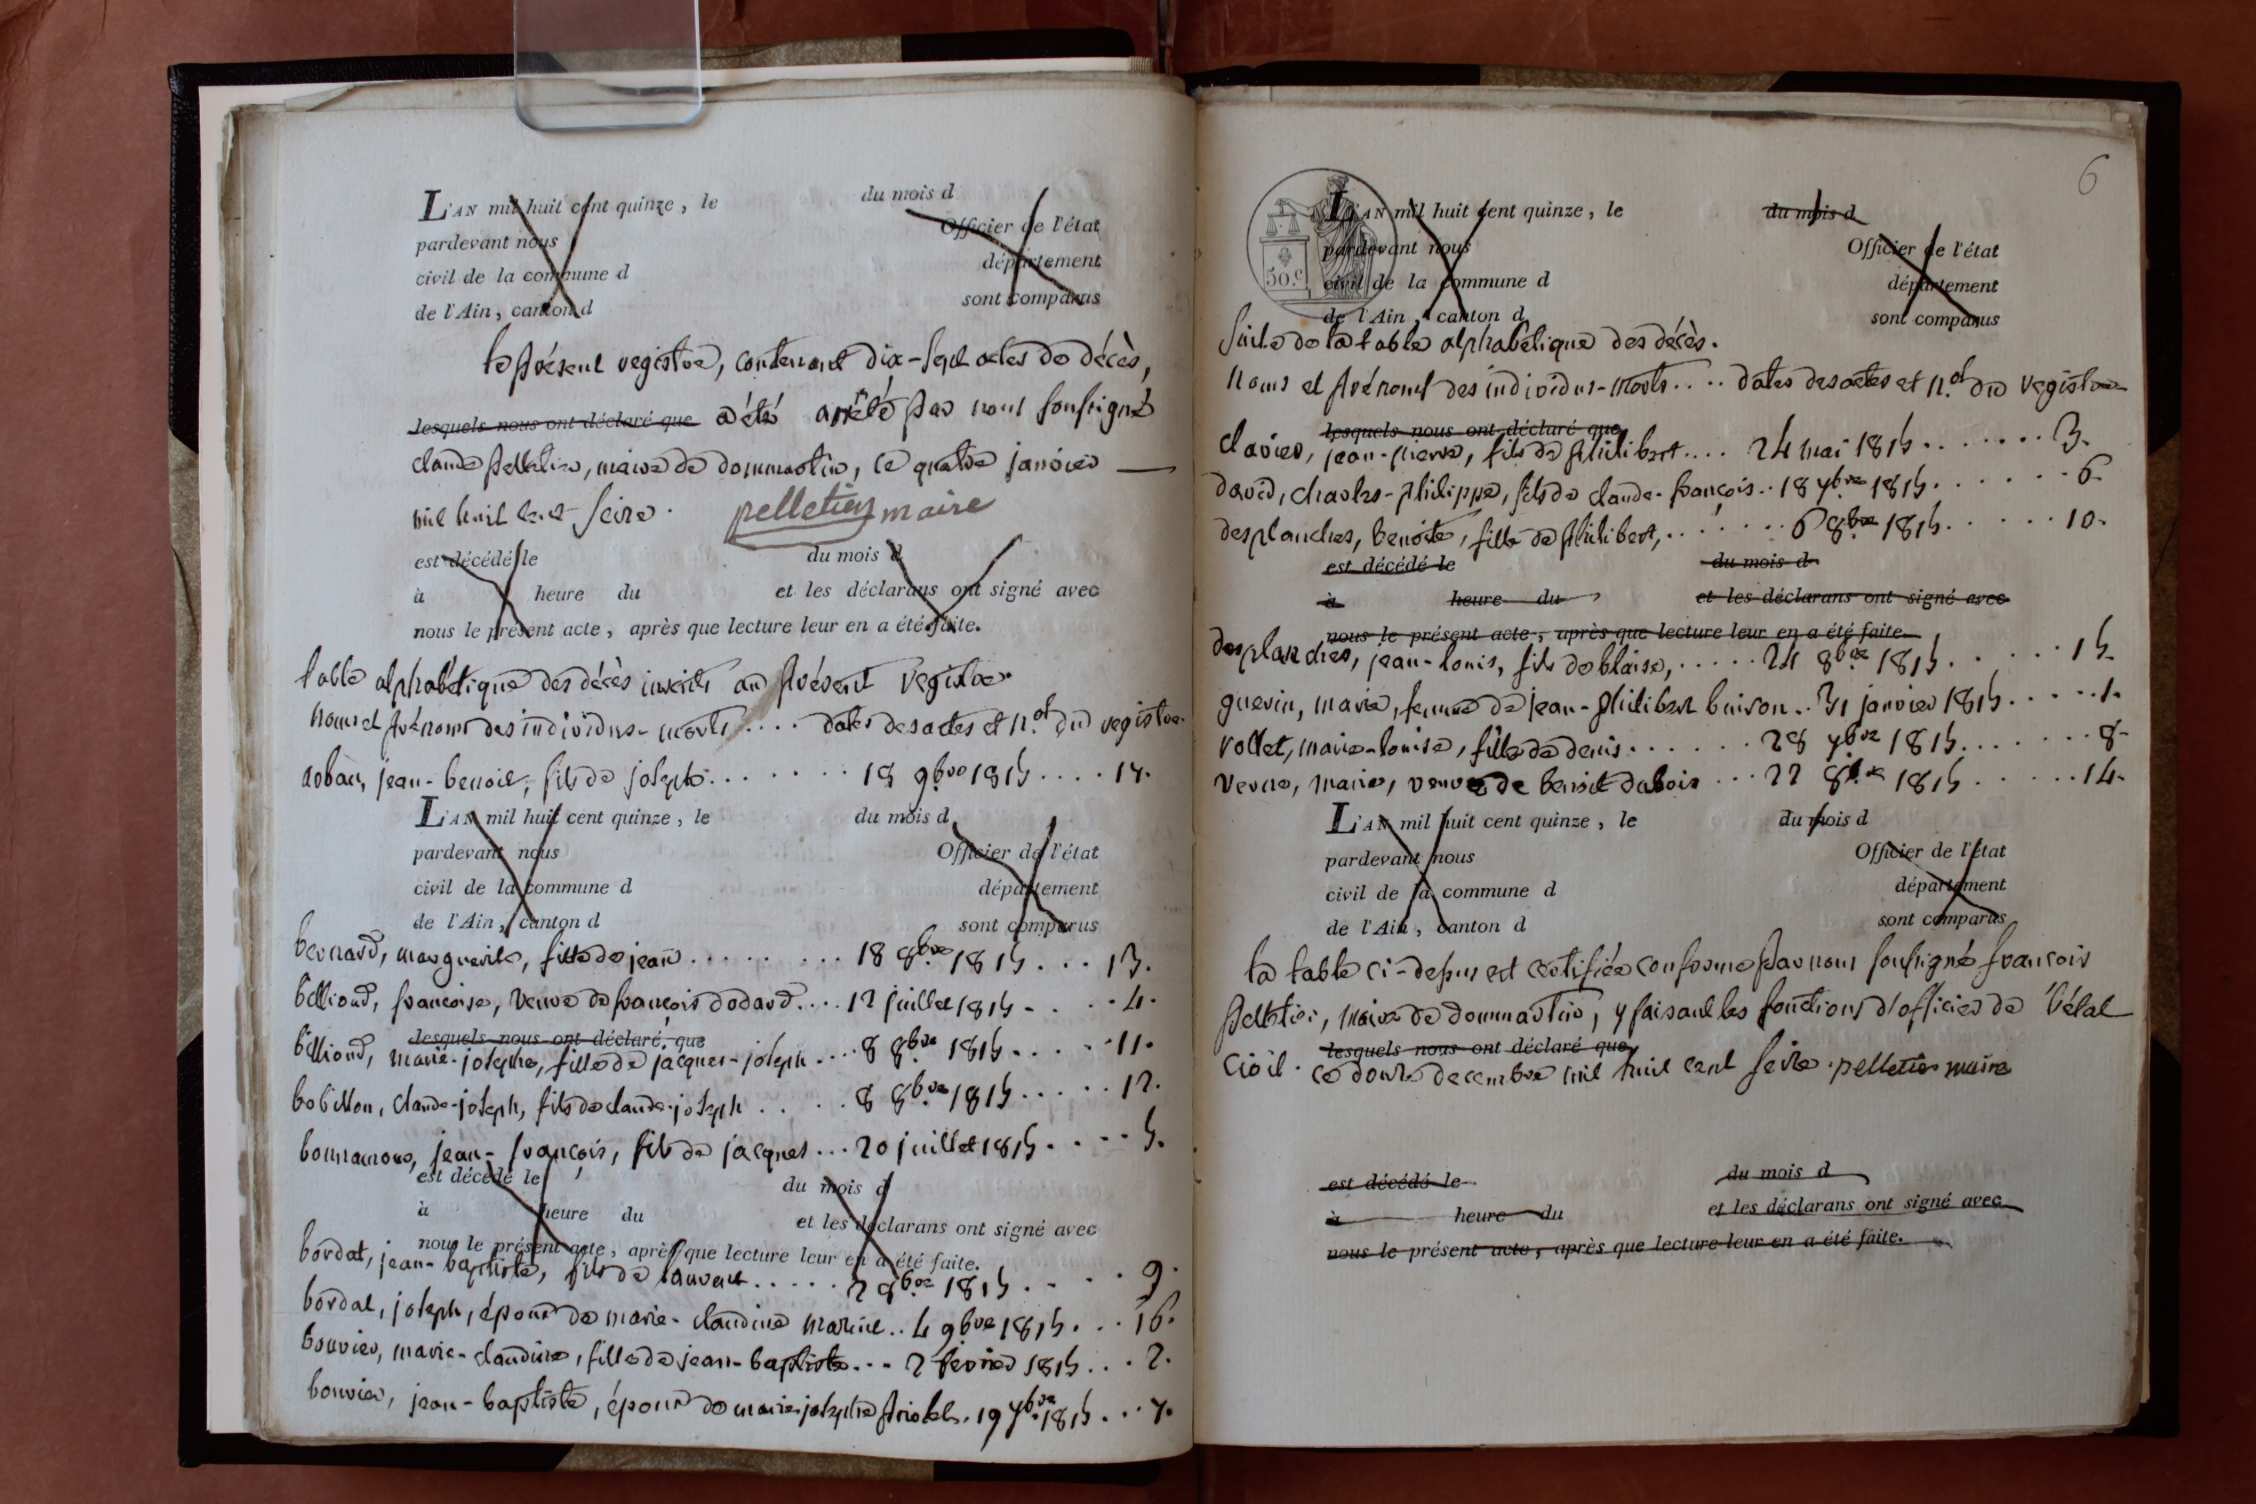 L'AN mil huit cent quinze, le du mois d
pardevant nous Officier de l'état
civil de la commune d département
de l'Ain, canton d sont comparus
le présent registre, contenant dix-sept actes de décès,
lesquels nous ont déclaré que a été arrêté par nous soussigné
claude pelletier, maire de dommartin, ce quatre janvier
mil huit cent seize. pelletier maire
est décédé le du mois d
à heure du et les déclarans ont signé avec
nous le présent acte, après que lecture leur en a été faite.
table alphabétique des décès inscrits au présent registre.
noms et prénoms des individus-morts.... dates des actes et n.os du registre.
jean-benoit, fils de joseph....... 18 9.bre 1815.... 17.
L'AN mil huit cent quinze, le du mois d
pardevant nous Officier de l'état
civil de la commune d département
de l'Ain, canton d sont comparus
bernard, marguerite, fille de jean........ 18 8.bre 1815... 13.
billioud, francoise, veuve de françois dodard.... 12 juillet 1815 - . . . 4.
lesquels nous ont déclaré que
billioud, marie-josephe, fille de jacques-joseph.... 8 8.bre 1815..... 11.
bobillon, claude-joseph, fils de claude-joseph..... 8 8.bre 1815..... 12.
bonnamour, jean-françois, fils de jacques... 20 juillet 1815.... 5.
est décédé le du mois d
à heure du et les déclarans ont signé avec
nous le présent acte, après que lecture leur en a été faite.
bordat, jean-baptiste, fils de laurent..... 2 8.bre 1815.... 9.
bordat, joseph, époux de marie-claudine marine.. 4 9.bre 1815... 16.
bouvier, marie-claudine, fille de jean-baptiste... 2 fevrier 1815... 2.
bouvier, jean-baptiste, époux de marie-josephe . 19 7.bre 1815... 7.
6
50.c
L'AN mil huit cent quinze, le du mois d
pardevant nous Officier de l'état
civil de la commune d département
de l'Ain, canton d sont comparus
suite de la table alphabétique des décès.
noms et prénoms des individus-morts.... dates des actes et n.os du registre
lesquels nous ont déclaré que
clavier, jean-pierre, fils de philibert.... 24 mai 1815....... 3.
david, charles-philippe, fils de claude-françois.. 18 7.bre 1815....... 6.
desplanches, benoite, fille de philibert,...... 6 8.bre 1815...... 10.
est décédé le du mois d
à heure du et les déclarans ont signé avec
nous le présent acte, après que lecture leur en a été faite.
desplanches, jean-louis, fils de blaise,..... 24 8.bre 1815...... 15.
guerin, marie, femme de jean-philibert buiron.. 31 janvier 1815..... 1.
vollet, marie-louise, fille de denis...... 28 7.bre 1815....... 8.
verne, marie, veuve de benoit dubois... 22 8.bre 1815...... 14.
L'AN mil huit cent quinze, le du mois d
pardevant nous Officier de l'état
civil de la commune d département
de l'Ain, canton d sont comparus
la table ci-dessus est certifiée conforme par nous soussigné françois
pelletier, maire de dommartin, y faisant les fonctions d'officier de l'état
lesquels nous ont déclaré que
civil. ce douze decembre mil huit cent seize. pelletier maire
est décédé le du mois d
à heure du et les déclarans ont signé avec
nous le présent acte, après que lecture leur en a été faite.